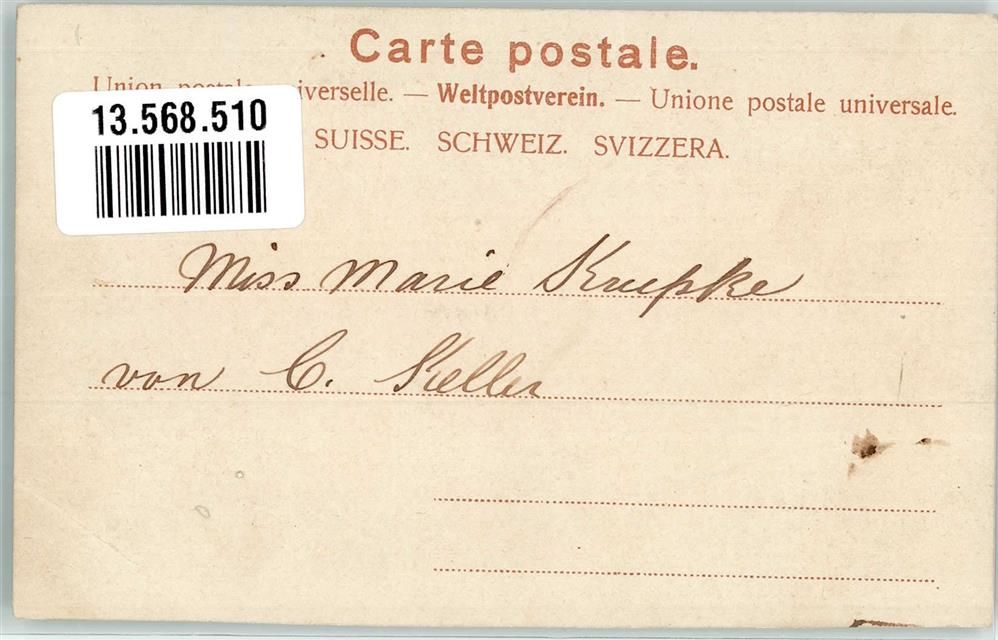 Carte postale.
Union postale universelle. — Weltpostverein. — Unione postale universale.
SUISSE. SCHWEIZ. SVIZZERA.
13.568.510
Miss Marie Kruepke
von C. Keller